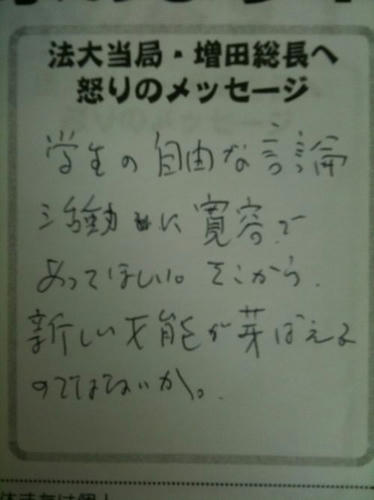 法大当局・増田総長へ
怒りのメッセージ
学生の自由な言論
活動に寛容で
あってほしい。そこから、
新しい才能が芽ばえる
のではないか。